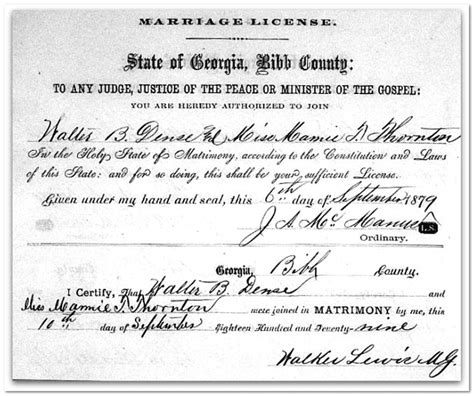 MARRIAGE LICENSE.
State of Georgia, Bibb County:
TO ANY JUDGE, JUSTICE OF THE PEACE OR MINISTER OF THE GOSPEL:
YOU ARE HEREBY AUTHORIZED TO JOIN
Walter B. Dense Miss Mamie T. Thornton
In the Holy State of Matrimony, according to the Constitution and Laws
of this State: and for so doing, this shall be your sufficient License.
Given under my hand and seal, this 6th day of September 1879
J. A. McManus L.S.
Ordinary.
Georgia, Bibb County.
I Certify, That Walter B. Dense
Miss Mammie T. Thornton were joined in MATRIMONY by me, this
10th day of September Eighteen Hundred and Seventy-nine
Walker Lewis M.G.